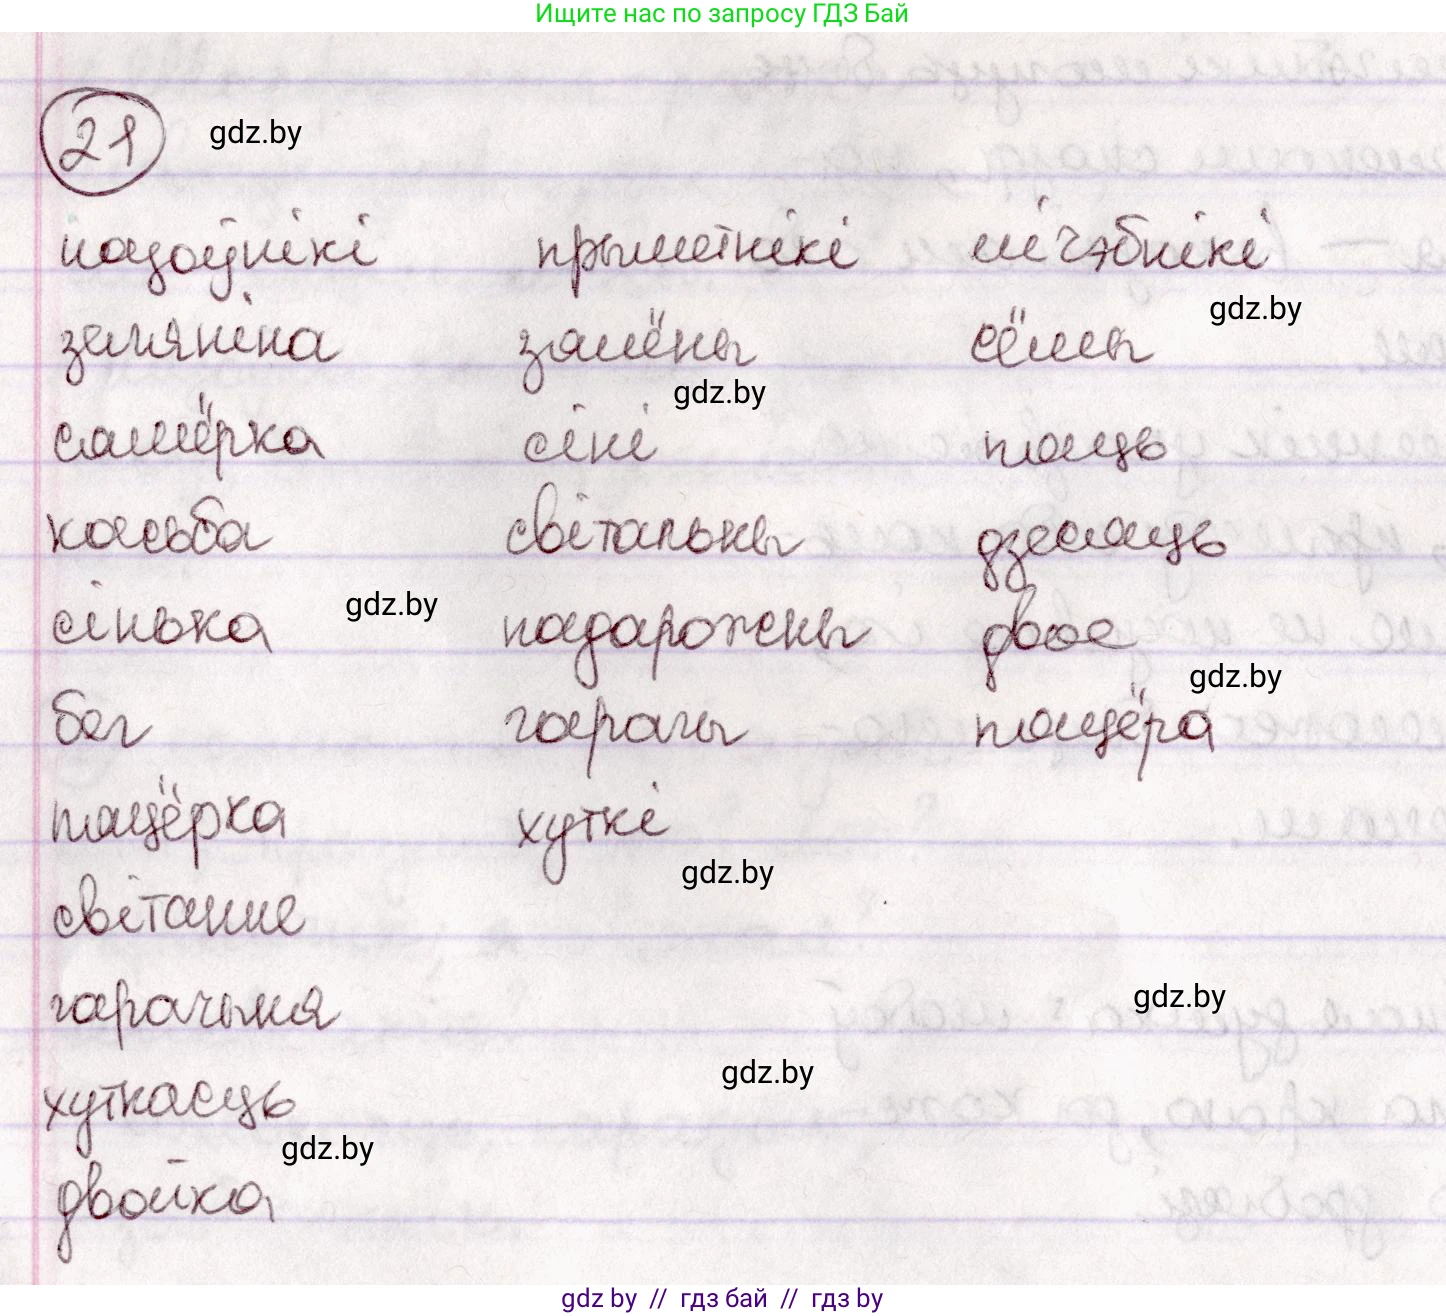 Ищите нас по запросу ГДЗ Бай
21 gdz.by
назоўнікі прыметнікі лічэбнікі
gdz.by
зямяніна замёны сёмы
gdz.by
сямёрка сіні пяць
касьба світальны дзесяць
сінька gdz.by падарожны двое
gdz.by
бег гарачы пяцёра
пяцёрка хуткі
gdz.by
світанне
gdz.by
гарачыня
gdz.by
хуткасць
gdz.by
двойка
gdz by // гдз бай // гдз by